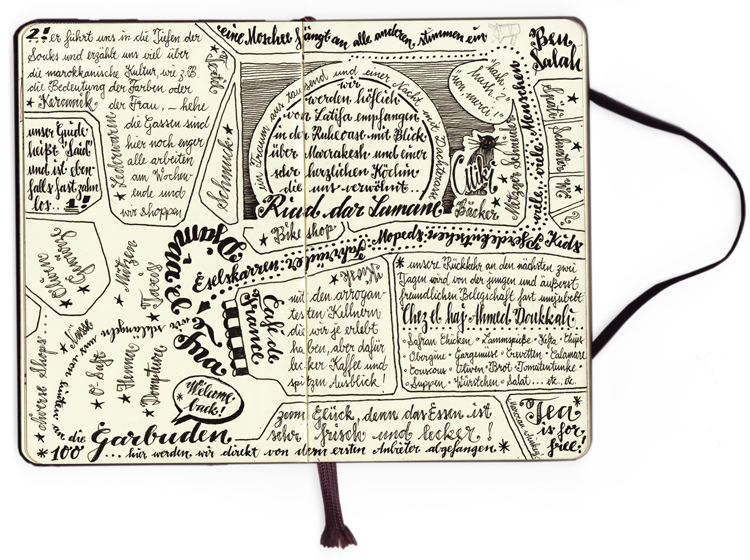 2! er führt uns in die Tiefen der
Souks und erzählt uns viel über
die marokkanische Kultur, wie z.B.
die Bedeutung der Farben oder
der Frau, – hehe
die Gassen sind
hier noch enger
alle arbeiten
am Wochen-
ende und
wir shoppen
Keramik
unser Guide
heißt "Said"
und ist eben-
falls fast zahn
los... 1!
Lederwaren
Schmuck
eine Moschee fängt an alle anderen stimmen ein
Ben
Salah
ein Traum aus tausend und einer Nacht mit Dachterrasse
wir
werden höflich
von Latifa empfangen
in der Ruheoase mit Blick
über Marrakesh und einer
sehr herzlichen Köchin
die uns verwöhnt...
Riad dar Zaman
Bike shop
merci!"
Bäcker
Metzger
viele... viele Menschen
WC
Eselskarren Fahrräder Mopeds Pferdekutschen Kids
Djemaa el
Fna
Gewürze
Mützen
Taxis
O-Saft
Thema:
diverse Shops...
Welcome
back!
Café de
France
Kiosk
mit den arrogan-
testen Kellnern
die wir je erlebt
haben, aber dafür
lecker Kaffee und
spitzen Ausblick!
unsere Rückkehr an den nächsten zwei
Tagen wird von der jungen und äußerst
freundlichen Belegschaft fast umjubelt
Chez el haj Ahmed Doukkali
Safran Chicken · Lammspieße · Kefta · Chips
Aborgine · Gargemüse · Crevetten · Calamare
Couscous · Oliven · Brot · Tomatentunke
Suppen · Würstchen · Salat... etc. etc.
zum Glück, denn das Essen ist
sehr frisch und lecker!
an die
100 Garbuden
... hier werden wir direkt von dem ersten Anbieter abgefangen
Tea
is for
free!